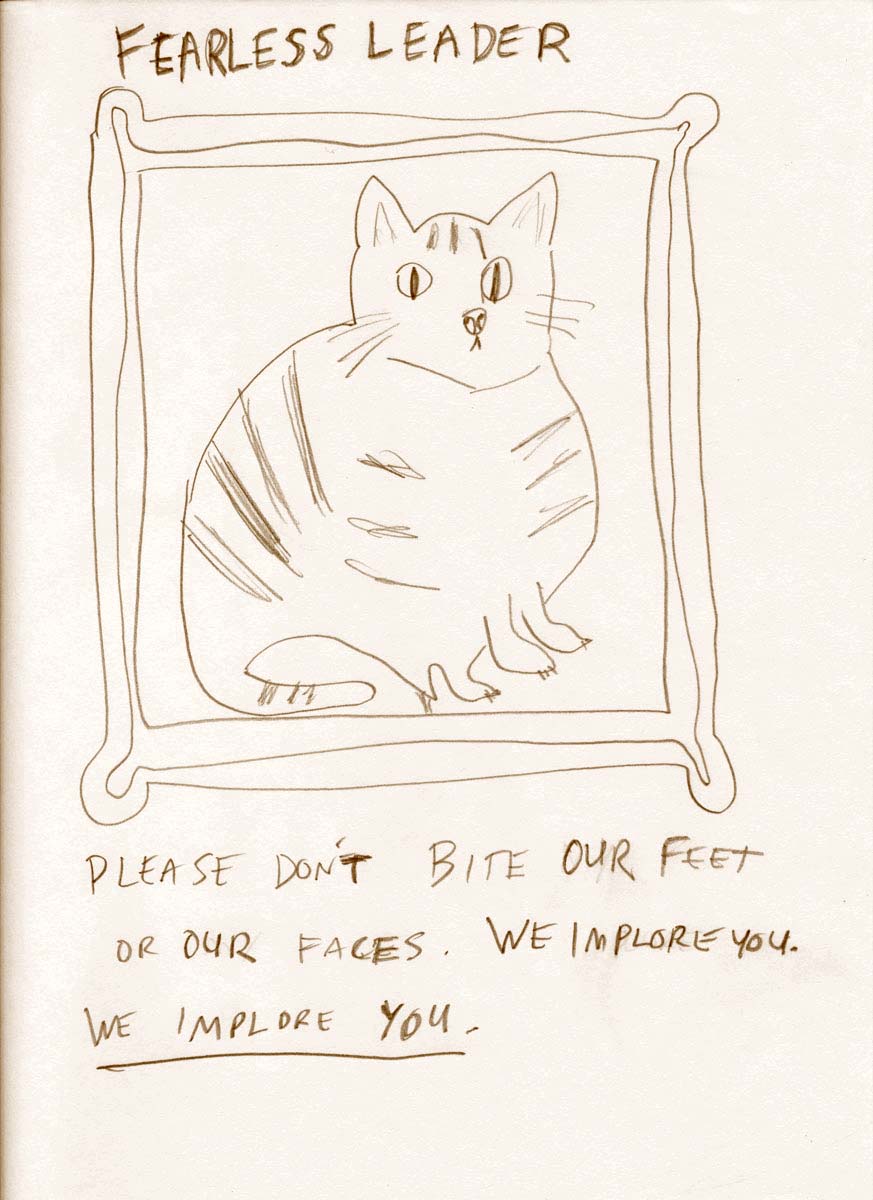 FEARLESS LEADER
PLEASE DON'T BITE OUR FEET
OR OUR FACES. WE IMPLORE YOU.
WE IMPLORE YOU.